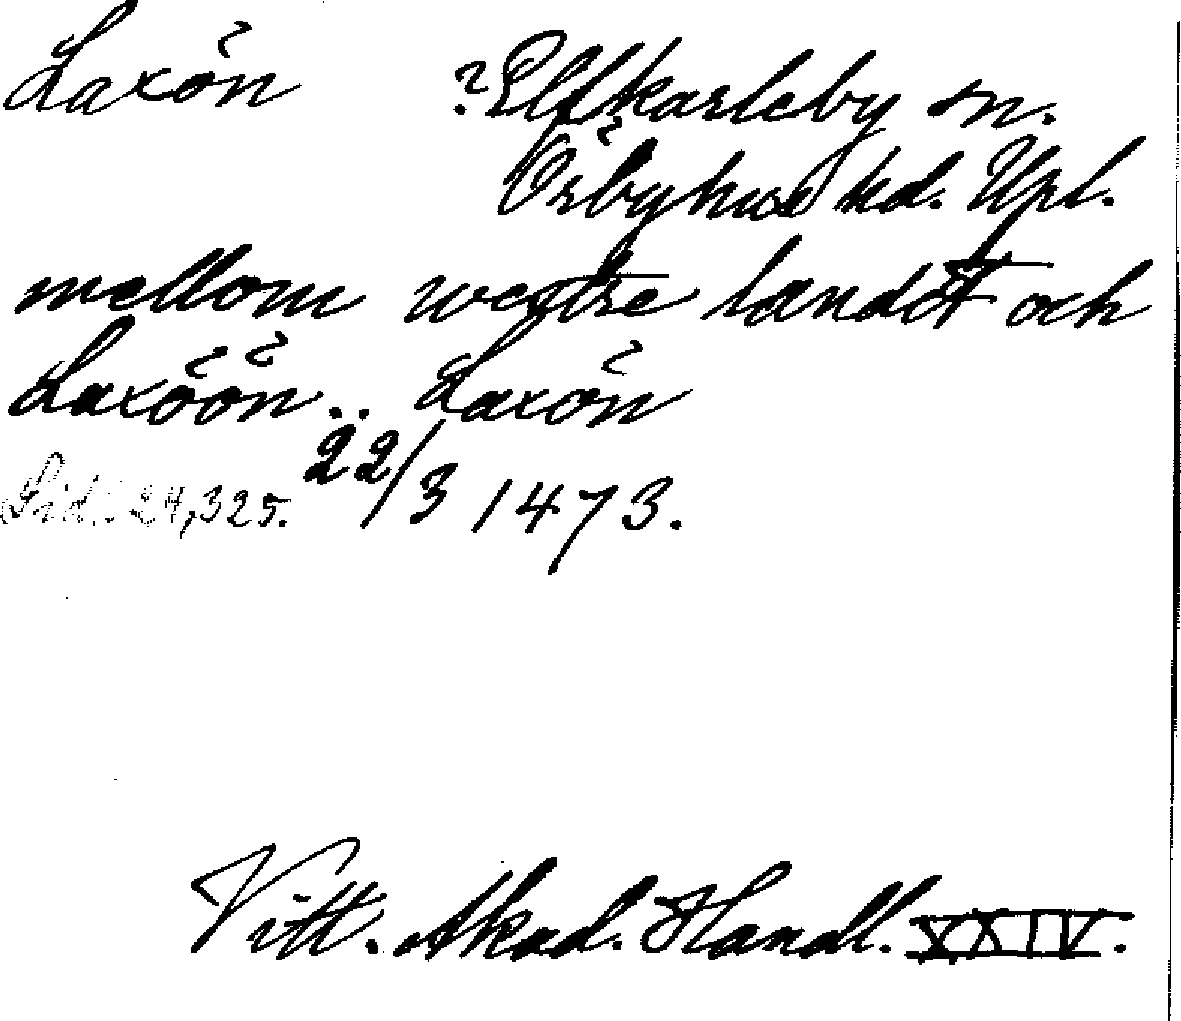 Laxön ? Elfkarleby sn.
Örbyhus hd. Upl.
mellom westre landet och
Laxöön .. Laxön
Sid. 24,325. 22/3 1473.
Vitt. Akad. Handl. XXIV.